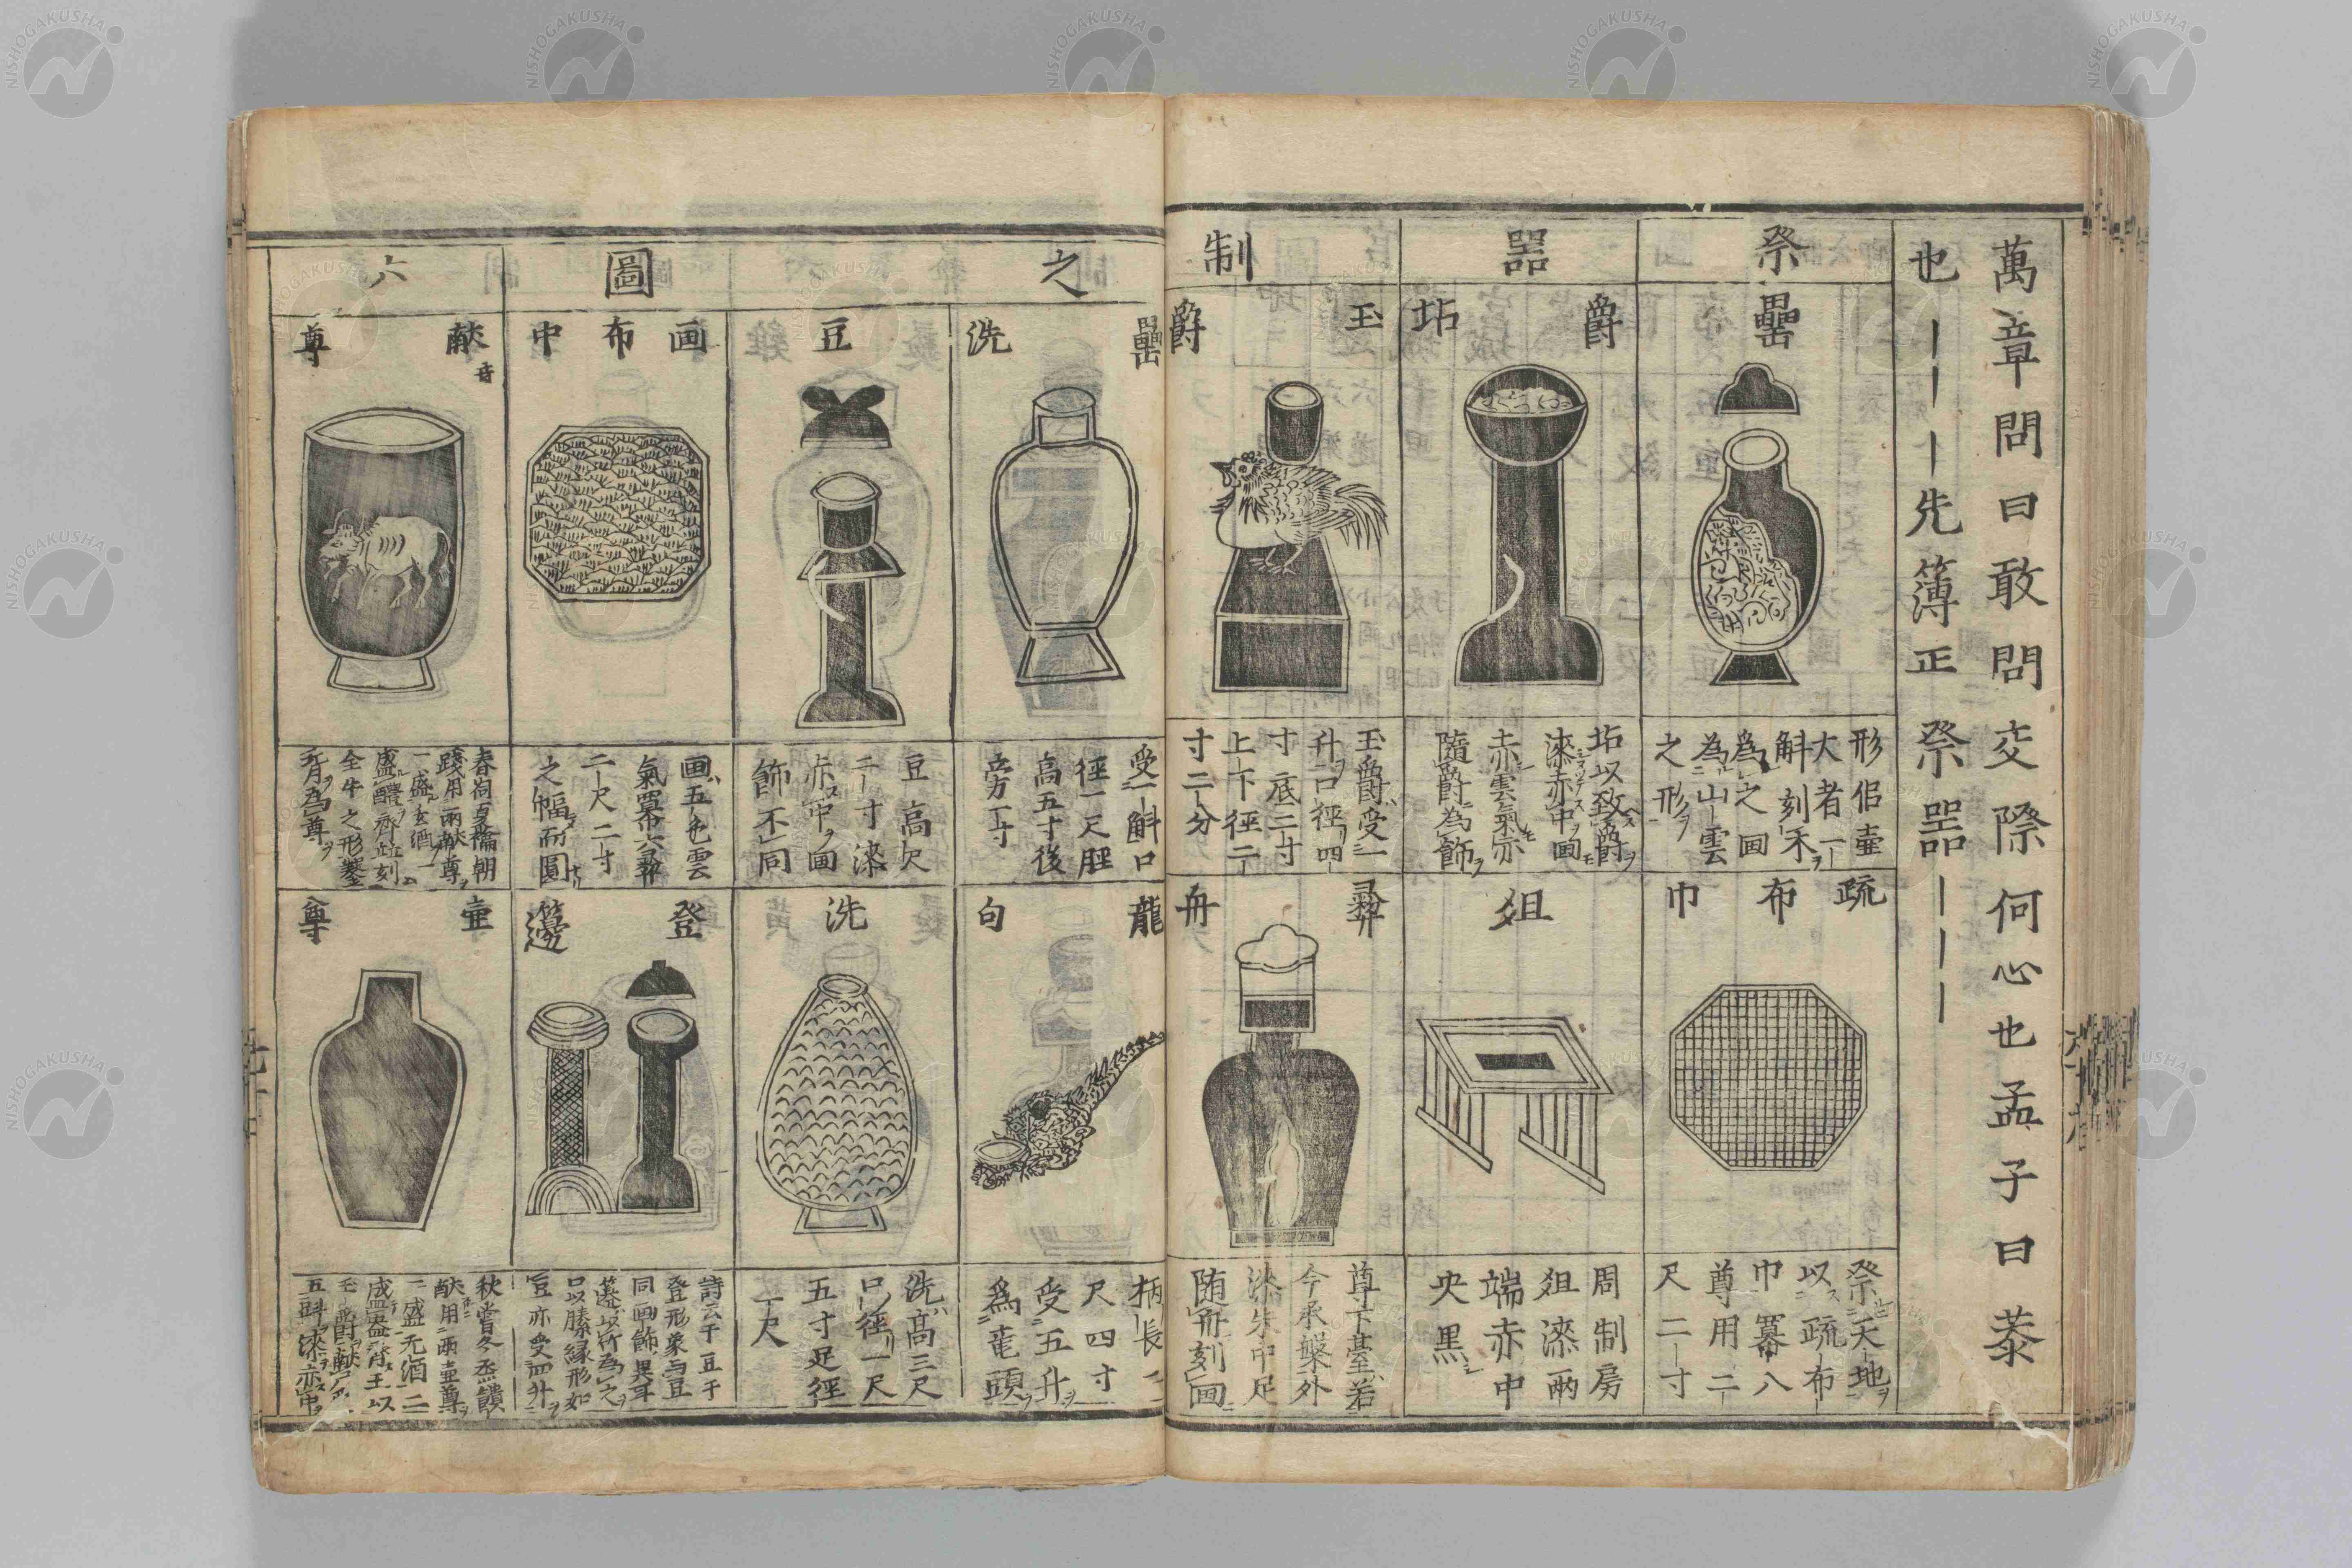 萬章問曰敢問交際何心也孟子曰恭
也ーーー先簿正祭器ーーー
祭
噐
制
罍
形佀壷
大者一
斛刻禾
爲之画
為山雲
之形ヲ
爵坫
坫以致爵ヲ
漆赤中ヲ画モ
赤雲氣亦
隨爵為飾ヲ
玉爵
玉爵受一
升口徑四
寸底二寸
上下徑二
寸二分
疏布巾
祭天地ヲ
以疏布
巾冪八
尊用二
尺二寸
俎
周制房
俎漆兩
端赤中
央黒
彛舟
尊下臺若
今承槃外
漆朱中足
随舟刻画
之
圖
六
罍洗
受一斛口
徑一尺脛
高五寸後
旁一寸
豆
豆高尺
二寸漆
赤中ヲ画
飾不同
画布巾
画五色雲
氣冪六彛
二尺二寸
之幅而圓
献尊
春祠夏禴朝
踐用兩献尊ヲ
一盛玄酒一
盛醴齊竝刻
全牛之形鑿
背為尊ヲ
龍句
柄長二
尺四寸
受五升ヲ
爲竜頭ヲ
洗
洗高三尺
口徑一尺
五寸足徑
一尺
登籩
詩云于豆于
登形象与豆
同画飾異耳
籩以竹為之ヲ
口以縢縁形如
豆亦受四升ヲ
壷尊
秋嘗冬烝饋
献用兩壷尊ヲ
一盛元酒一
盛盎斉王以
玉爵献尸
五斗漆赤中ヲ
NISHOGAKUSHA